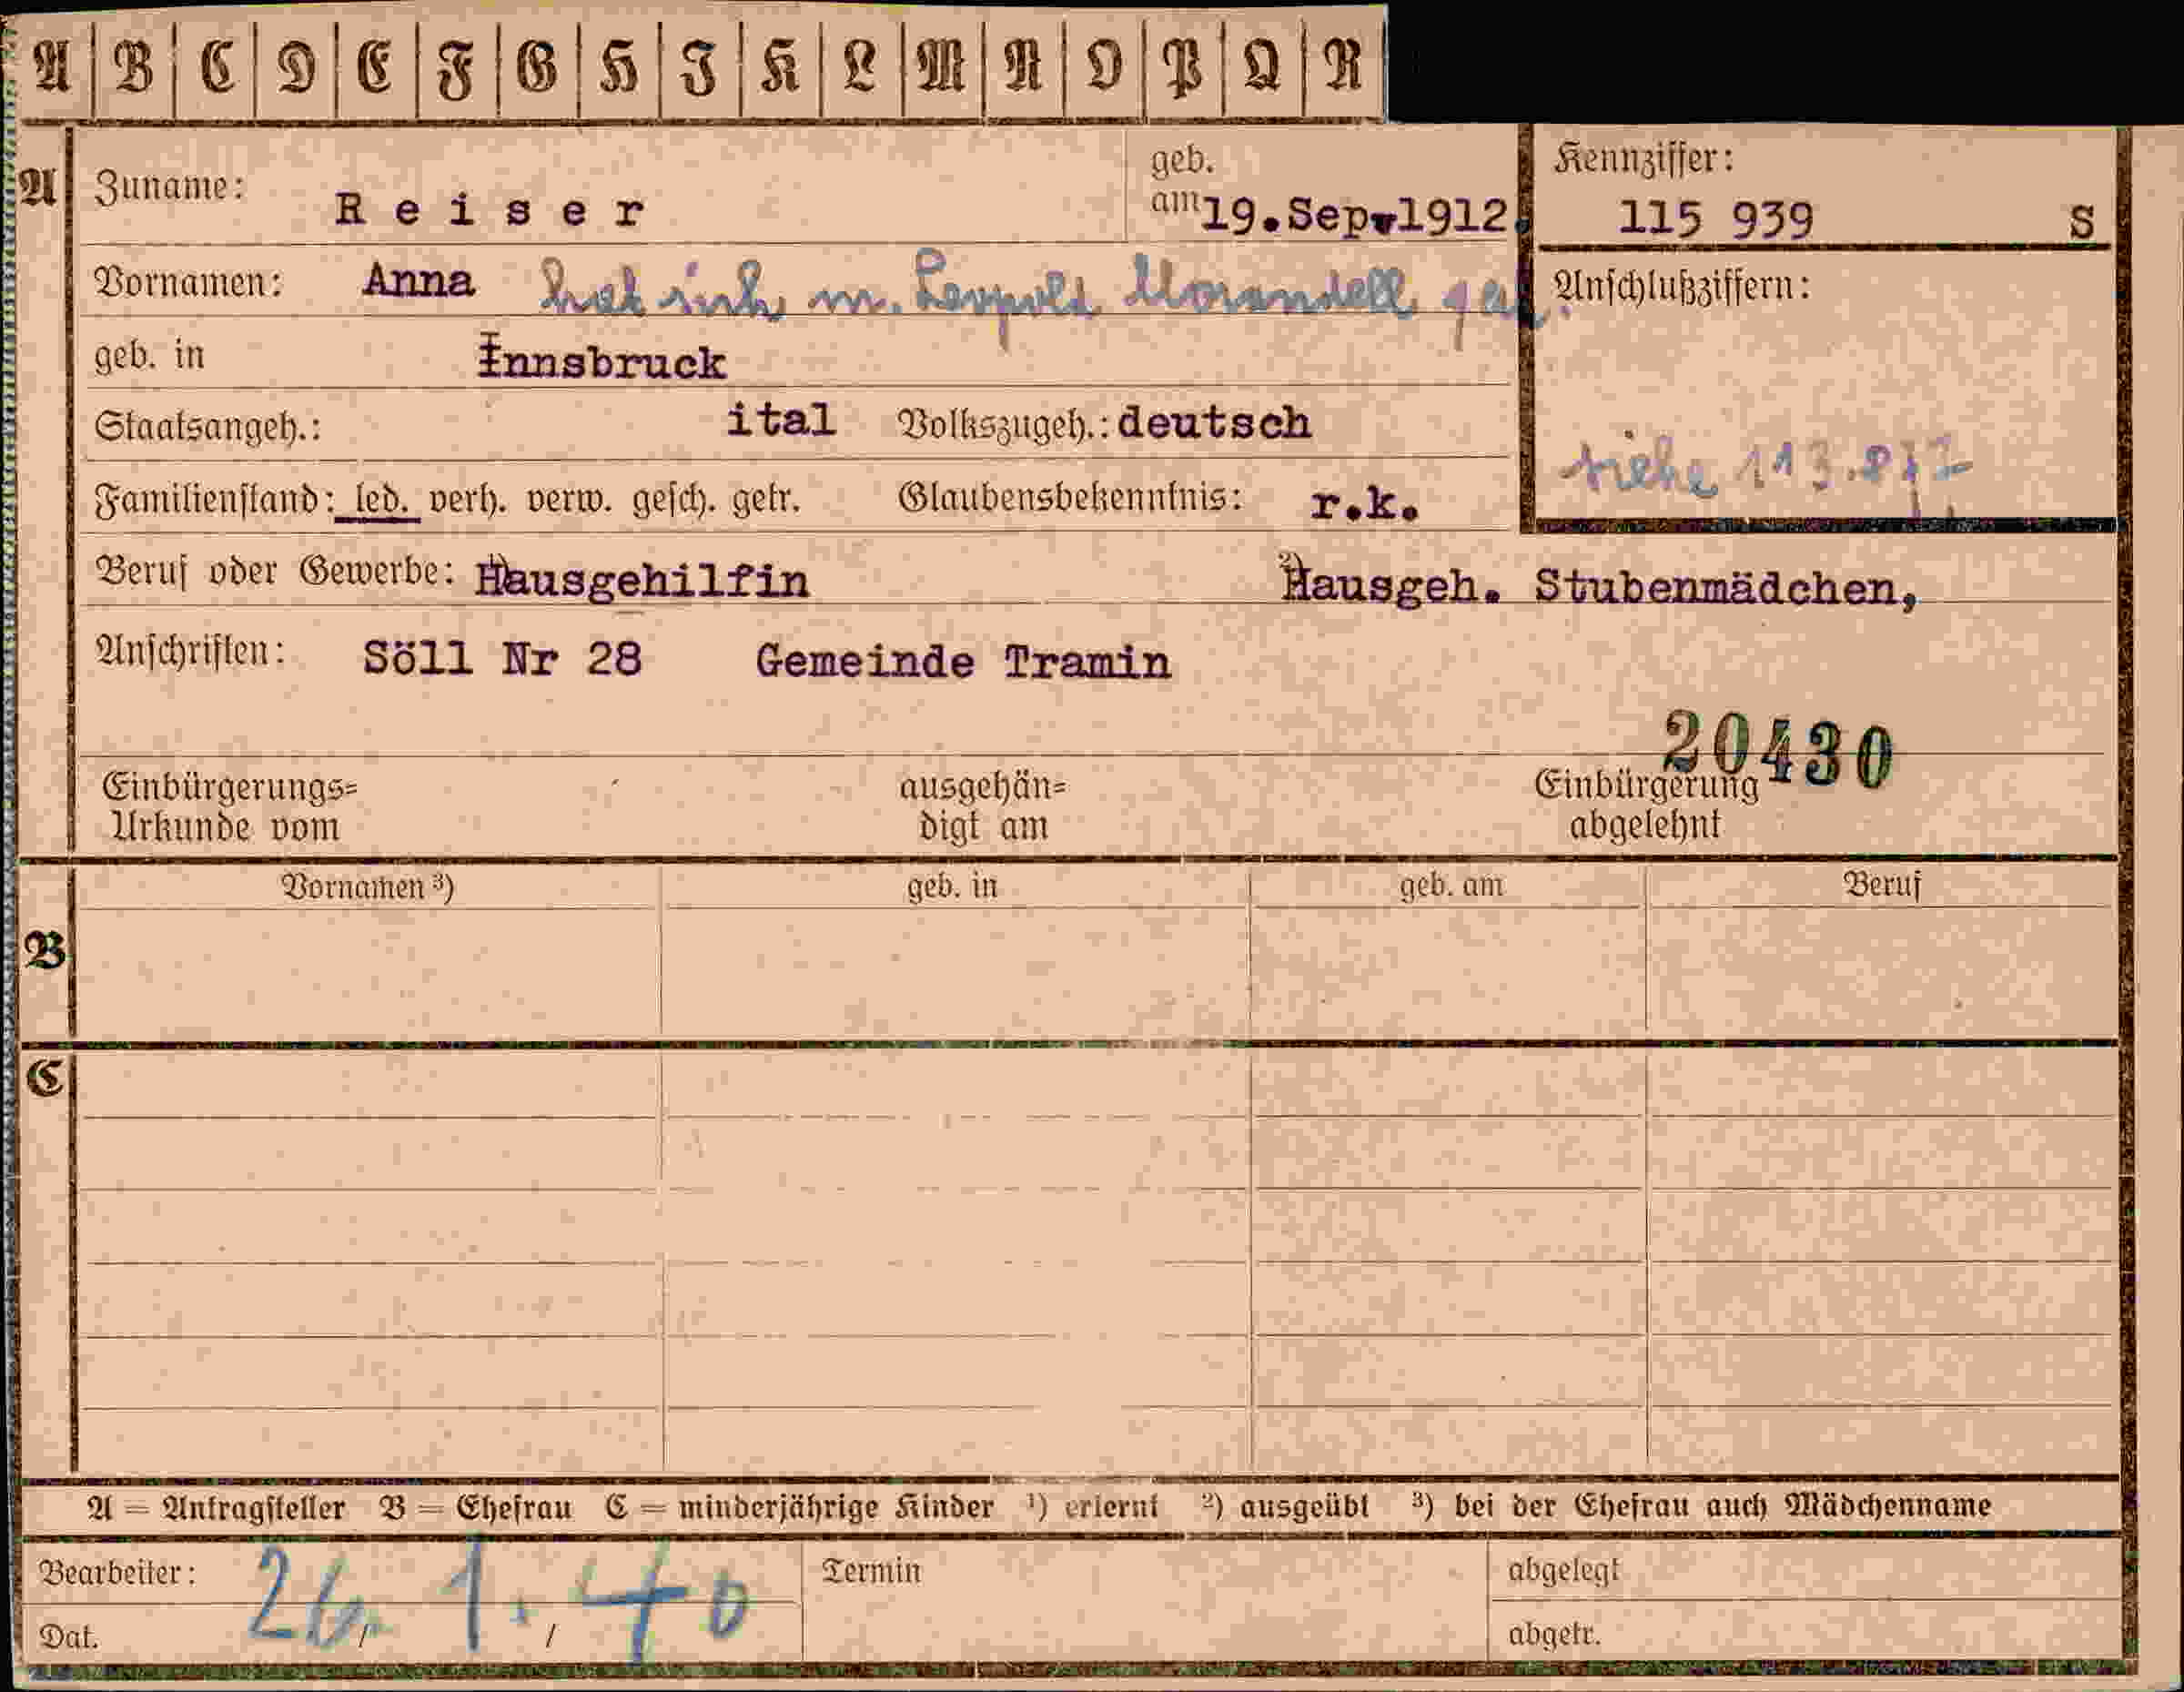 A B C D E F G H I K L M N O P Q R
A Zuname: Reiser geb. am 19.Sep.1912. Kennziffer: 115 939 S
Vornamen: Anna hat sich m. Leopold Morandell Anschlußziffern:
geb. in Innsbruck
Staatsangeh.: ital Volkszugeh.: deutsch siehe
Familienstand: led. verh. verw. gesch. getr. Glaubensbekenntnis: r.k.
Beruf oder Gewerbe: Hausgehilfin ²) Hausgeh. Stubenmädchen,
Anschriften: Söll Nr 28 Gemeinde Tramin
20430
Einbürgerungs= ausgehän= Einbürgerung
Urkunde vom digt am abgelehnt
Vornamen ³) geb. in geb. am Beruf
B
C
A = Antragsteller B = Ehefrau C = minderjährige Kinder ¹) erlernt ²) ausgeübt ³) bei der Ehefrau auch Mädchenname
Bearbeiter: 26. 1. 40 Termin abgelegt
Dat. / / abgetr.